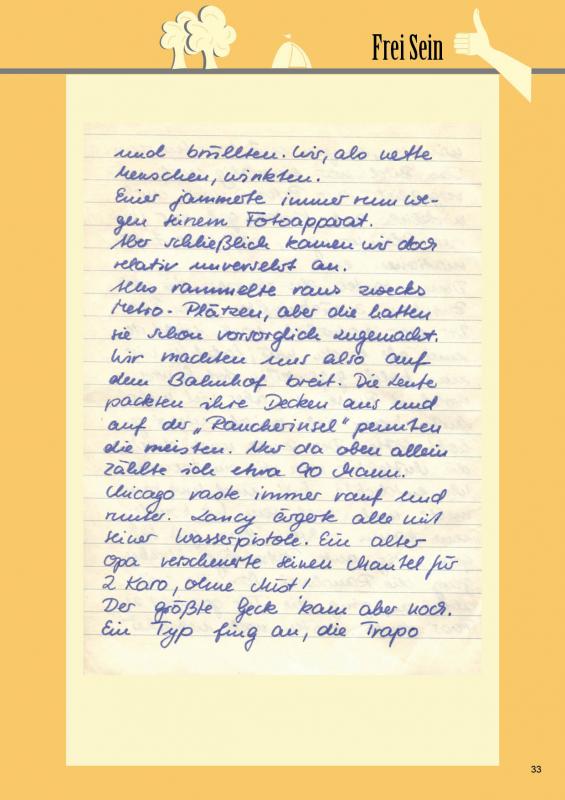 Frei Sein
und brüllten. Wir, als nette
Menschen, winkten.
Einer jammerte immer rum we-
gen seinem Fotoapparat.
Aber schließlich kamen wir doch
relativ unversehrt an.
Alles rammelte raus zwecks
Metro-Plätzen, aber die hatten
sie schon vorsorglich zugemacht.
Wir machten uns also auf
dem Bahnhof breit. Die Leute
packten ihre Decken aus und
auf der „Raucherinsel" pennten
die meisten. Nur da oben allein
zählte ich etwa 90 Mann.
Chicago raste immer rauf und
runter. Lancy ärgerte alle mit
seiner Wasserpistole. Ein alter
Opa verscheuerte seinen Mantel für
2 Karo, ohne Mist!
Der größte Geck kam aber noch.
Ein Typ fing an, die Trapo
33